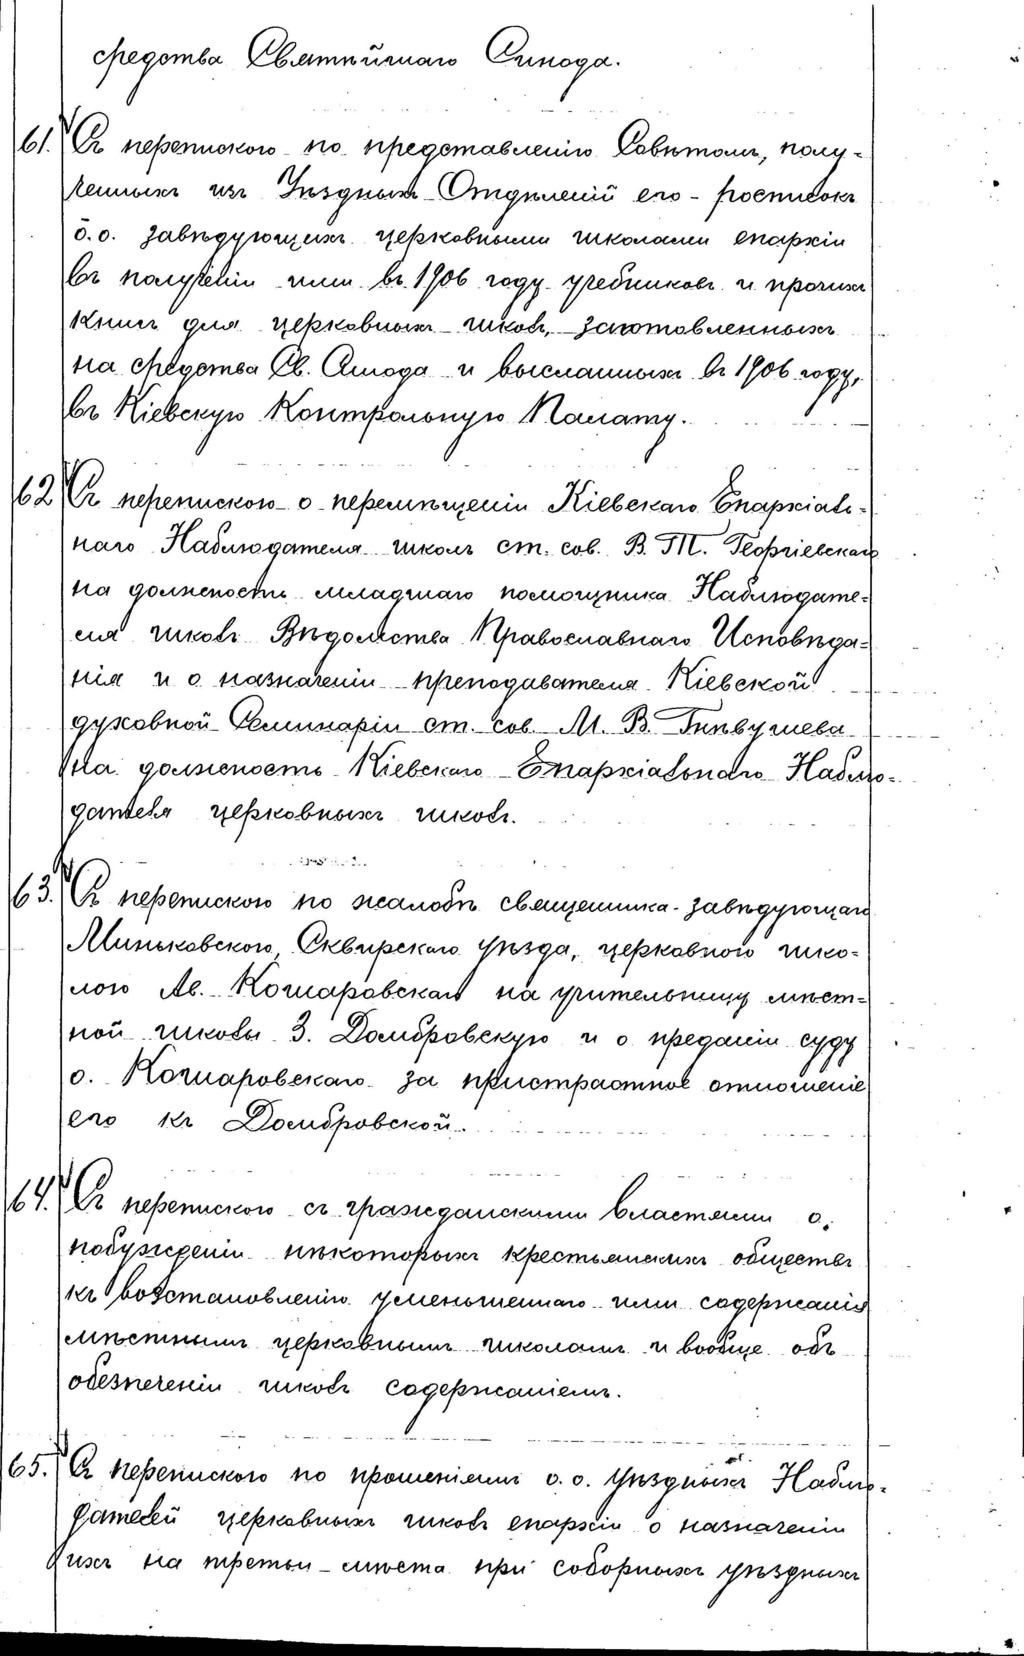 средства Святѣйшаго Синода.
61. Съ перепискою по представленію Совѣтомъ, полу-
ченныхъ изъ Уѣздныхъ Отдѣленій его - росписокъ
о.о. завѣдующихъ церковными школами епархіи
въ полученіи ими въ 1906 году учебниковъ и прочихъ
книгъ для церковныхъ школъ, заготовленныхъ
на средства Св. Синода и высланныхъ въ 1906 году,
въ Кіевскую Контрольную Палату.
62 Съ перепискою о перемѣщеніи Кіевскаго Епархіаль-
наго Наблюдателя школъ ст. сов. В. П. Георгіевскаго
на должность младшаго помощника Наблюдате-
ля школъ Вѣдомства Православнаго Исповѣда-
нія и о назначеніи преподавателя Кіевской
духовной Семинаріи ст. сов. М. В. Гнѣвушева
на должность Кіевскаго Епархіальнаго Наблю-
дателя церковныхъ школъ.
63. Съ перепискою по жалобѣ священника-завѣдующаго
Миньковскою, Сквирскаго уѣзда, церковною шко-
лою Ав. Кошаровскаго на учительницу мѣст-
ной школы З. Домбровскую и о преданіи суду
о. Кошаровскаго за пристрастное отношеніе
его къ Домбровской.
64. Съ перепискою съ гражданскими властями о
побужденіи нѣкоторыхъ крестьянскихъ обществъ
къ возстановленію уменьшеннаго ими содержанія
мѣстнымъ церковнымъ школамъ и вообще объ
обезпеченіи школъ содержаніемъ.
65. Съ перепискою по прошеніямъ о.о. Уѣздныхъ Наблю-
дателей церковныхъ школъ епархіи о назначеніи
ихъ на третьи мѣста при соборныхъ уѣздныхъ